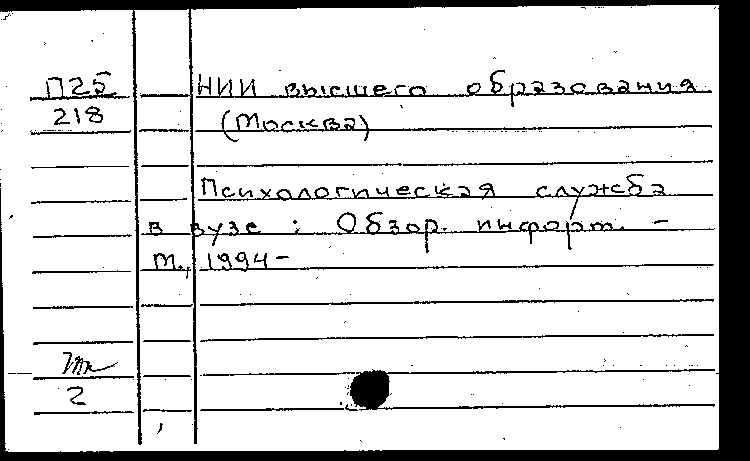 П25 НИИ высшего образования
218 (Москва)
Психологическая служба
в вузе : Обзор. информ. –
М., 1994–
2